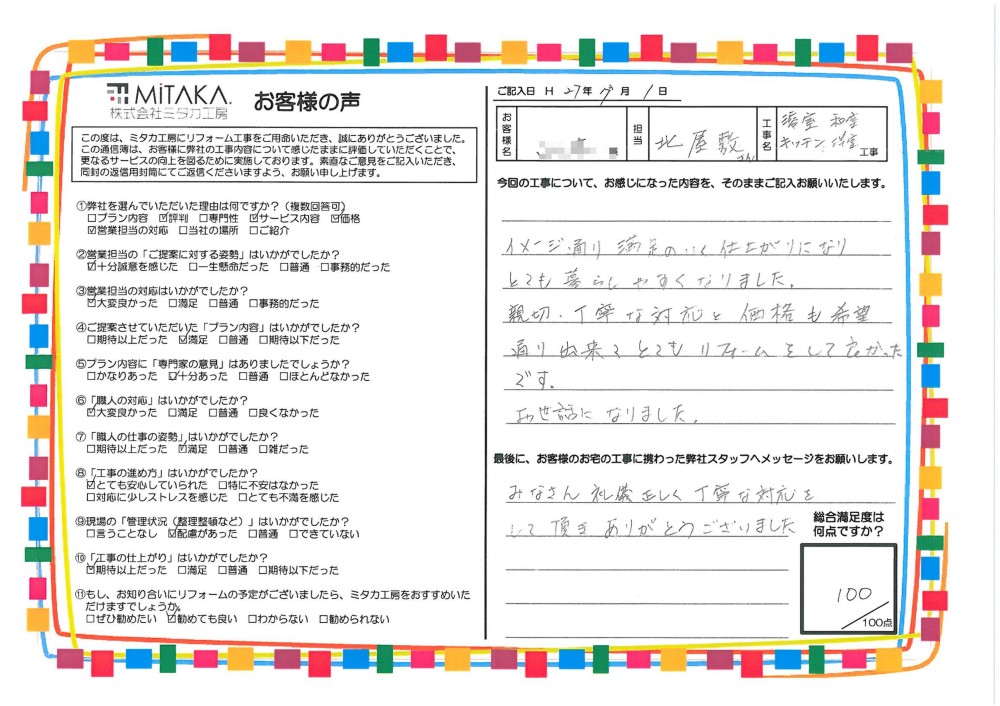 MiTAKA.
株式会社ミタカ工房
お客様の声
この度は、ミタカ工房にリフォーム工事をご用命いただき、誠にありがとうございました。
この通信簿は、お客様に弊社の工事内容について感じたままに評価していただくことで、
更なるサービスの向上を図るために実施しております。素直なご意見をご記入いただき、
同封の返信用封筒にてご返信くださいますよう、お願い申し上げます。
①弊社を選んでいただいた理由は何ですか？（複数回答可）
□プラン内容 ☑評判 □専門性 ☑サービス内容 ☑価格
☑営業担当の対応 □当社の場所 □ご紹介
②営業担当の「ご提案に対する姿勢」はいかがでしたか？
☑十分誠意を感じた □一生懸命だった □普通 □事務的だった
③営業担当の対応はいかがでしたか？
☑大変良かった □満足 □普通 □事務的だった
④ご提案させていただいた「プラン内容」はいかがでしたか？
□期待以上だった ☑満足 □普通 □期待以下だった
⑤プラン内容に「専門家の意見」はありましたでしょうか？
□かなりあった ☑十分あった □普通 □ほとんどなかった
⑥「職人の対応」はいかがでしたか？
☑大変良かった □満足 □普通 □良くなかった
⑦「職人の仕事の姿勢」はいかがでしたか？
□期待以上だった ☑満足 □普通 □雑だった
⑧「工事の進め方」はいかがでしたか？
☑とても安心していられた □特に不安はなかった
□対応に少しストレスを感じた □とても不満を感じた
⑨現場の「管理状況（整理整頓など）」はいかがでしたか？
□言うことなし ☑配慮があった □普通 □できていない
⑩「工事の仕上がり」はいかがでしたか？
☑期待以上だった □満足 □普通 □期待以下だった
⑪もし、お知り合いにリフォームの予定がございましたら、ミタカ工房をおすすめいた
だけますでしょうか。
□ぜひ勧めたい ☑勧めても良い □わからない □勧められない
ご記入日 H 27年 月 1日
お客様名
担当 北屋敷さん
工事名 浴室 和室
キッチン、洋室 工事
今回の工事について、お感じになった内容を、そのままご記入お願いいたします。
イメージ通り 満足のいく仕上がりになり
とても暮らしやすくなりました。
親切、丁寧な対応と 価格も希望
通り出来てとてもリフォームをして良かった
です。
お世話になりました。
最後に、お客様のお宅の工事に携わった弊社スタッフへメッセージをお願いします。
みなさん礼儀正しく丁寧な対応を
して頂き ありがとうございました
総合満足度は
何点ですか？
100
／100点